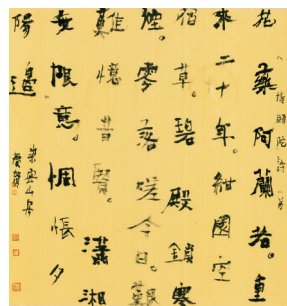 八指頭陀詩一首
花藥阿蘭若。重
來二十年。紺園空
宿草。碧殿鎖寒
煙。零落嗟今日。艱
難憶昔賢。瀟湘
無限意。惆悵夕
陽邊。